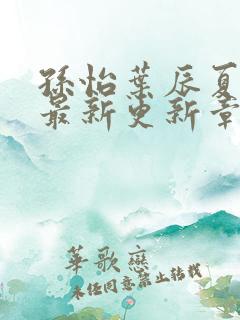 孫怡葉辰夏
最新更新章
華歌戀
未经同意禁止转载